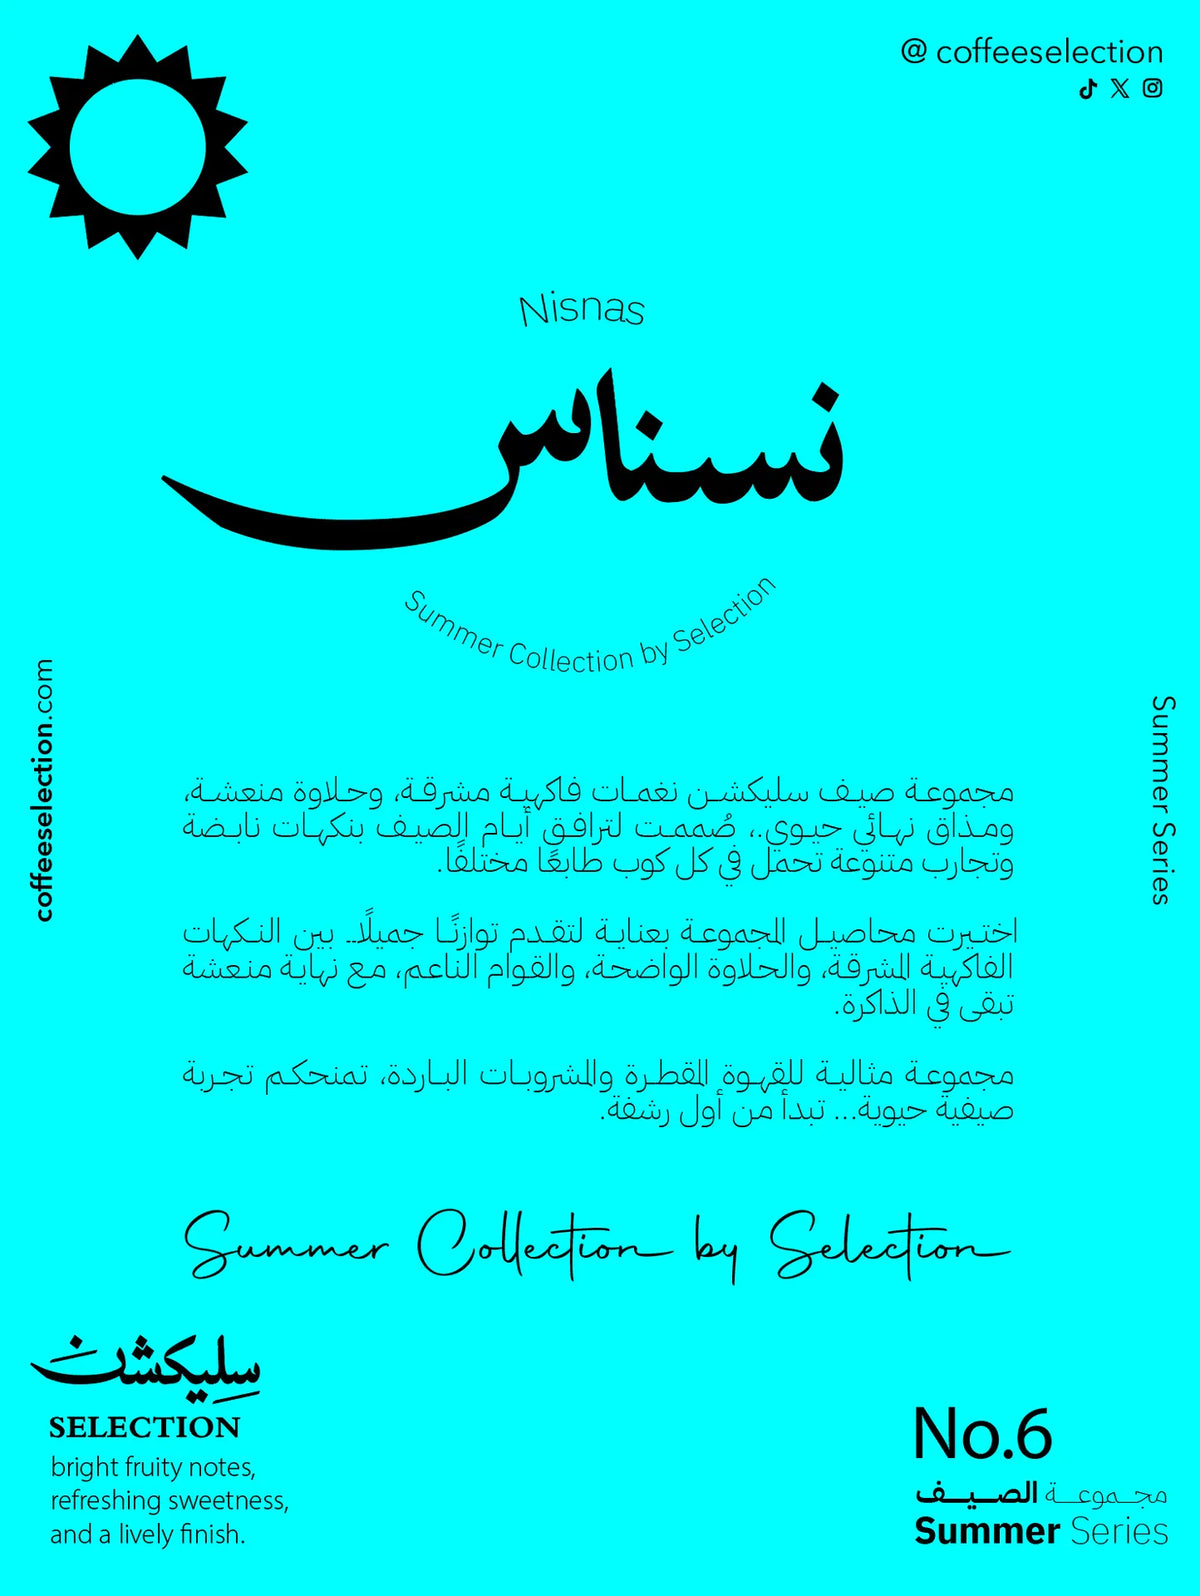 @ coffeeselection
Nisnas
نسناس
Summer Collection by Selection
coffeeselection.com
Summer Series
مجموعة صيف سليكشن نغمات فاكهية مشرقة، وحلاوة منعشة،
ومذاق نهائي حيوي.، صُممت لترافق أيام الصيف بنكهات نابضة
وتجارب متنوعة تحمل في كل كوب طابعًا مختلفًا.
اختيرت محاصيل المجموعة بعناية لتقدم توازنًا جميلًا.. بين النكهات
الفاكهية المشرقة، والحلاوة الواضحة، والقوام الناعم، مع نهاية منعشة
تبقى في الذاكرة.
مجموعة مثالية للقهوة المقطرة والمشروبات الباردة، تمنحكم تجربة
صيفية حيوية... تبدأ من أول رشفة.
Summer Collection by Selection
سِليكشن
SELECTION
bright fruity notes,
refreshing sweetness,
and a lively finish.
No.6
مجموعة الصيف
Summer Series